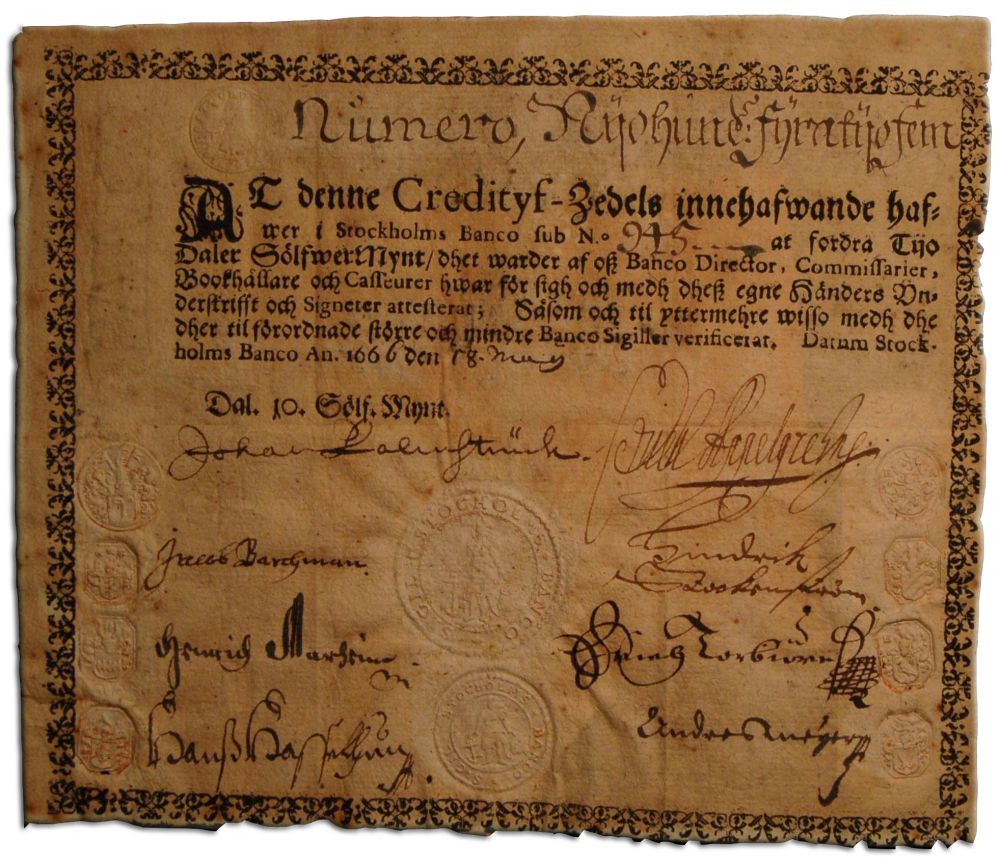 Numero, Nijohund: fyratijofem
AT denne Credityf-Zedels innehafwande haf-
wer i Stockholms Banco sub N.o 945 at fordra Tijo
Daler SölfwerMynt/ dhet warder af osz Banco Director, Commissarier,
Bookhållare och Casseurer hwar för sigh och medh dhesz egne Händers Un-
derskrifft och Signeter attesterat; Såsom och til yttermehre wisso medh dhe
dher til förordnade större och mindre Banco Sigiller verificerat. Datum Stock-
holms Banco An. 1666 den 18. May
Dal. 10. Sölf. Mynt.
Johan Palmstruck.
Jacob Barchman.
Hindrik
Henrich
Andres Meÿer
SIG STOCHOLMS BANCO
STOCHOLMS BANCO